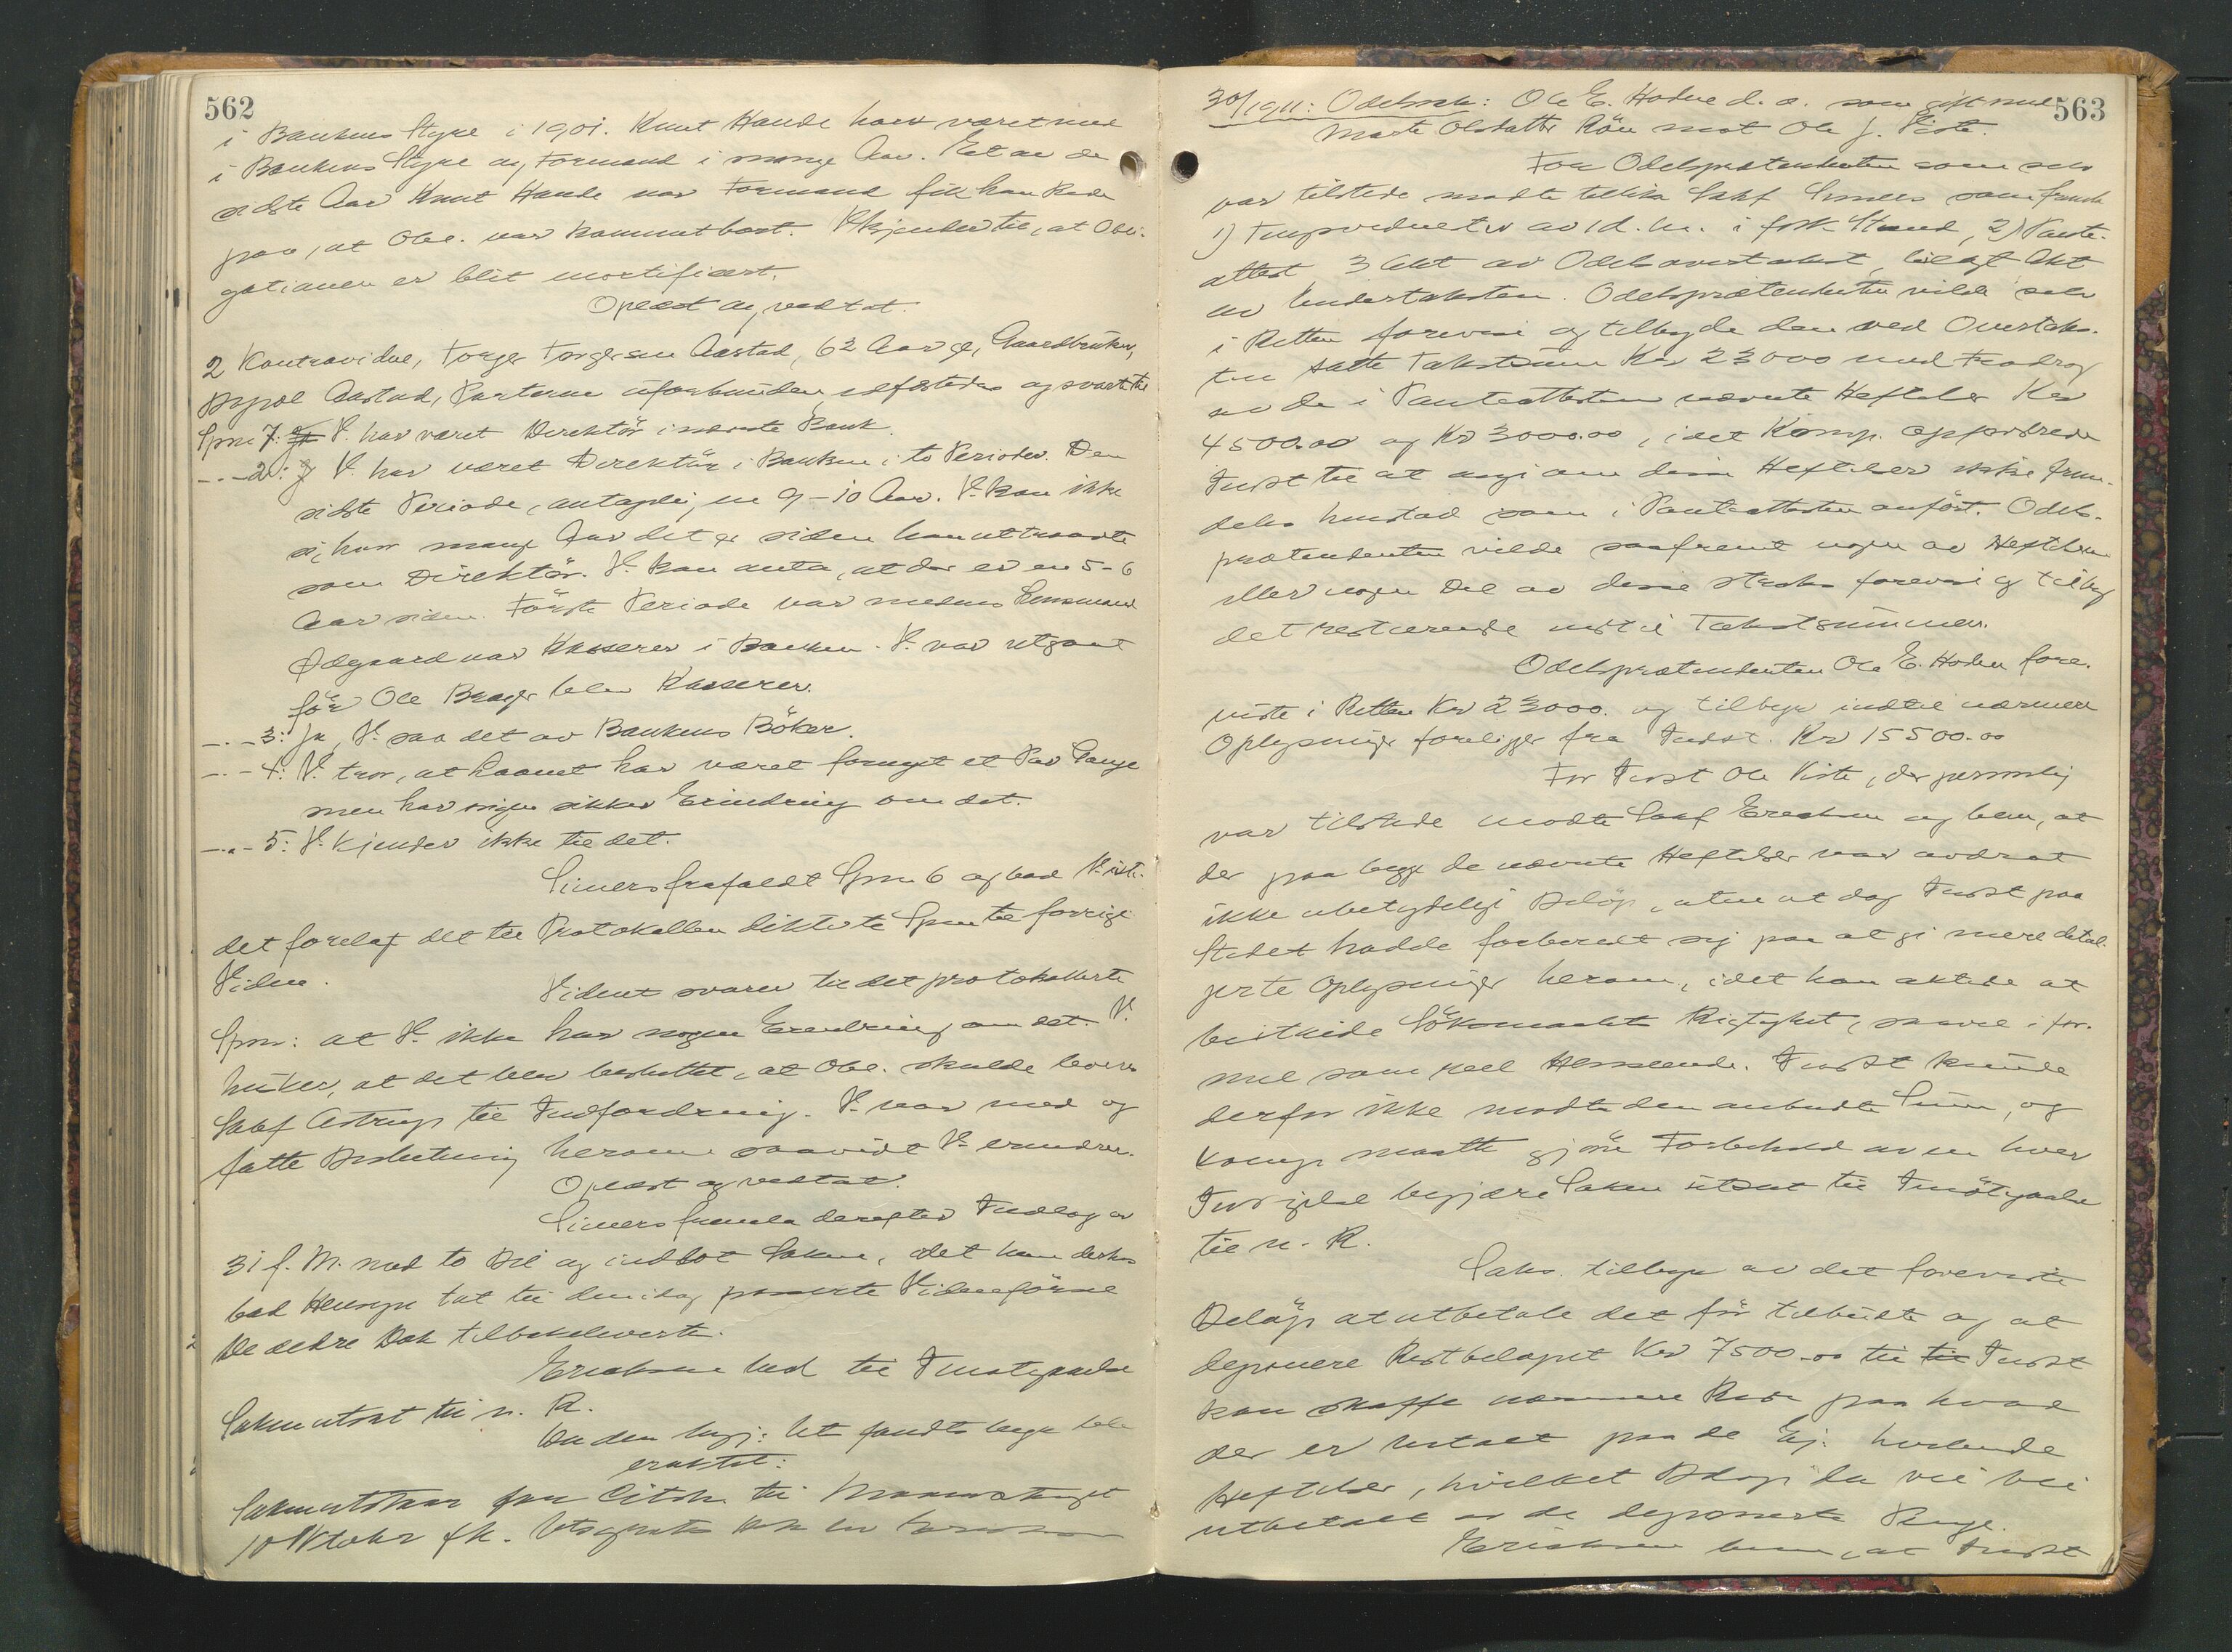 562
i Bankens Styre i 1901. Knut Hande har været med
i Bankens Styre og Formand i mange Aar. Et av de
sidste Aar Knut Hande var Formand fik han Rede
paa, at Obl. var kommet bort. V. kjender til, at Obli-
gationen er blit mortificert.
Oplæst og vedtat.
2 Kontravidne, Torger Torgersen Aastad, 62 Aar gl, Gaardbruker,
Aastad, Parterne uforbunden, edfæstedes og svarte til
Spm 1: V. har været Direktör i nævnte Bank.
-"- 2: V. har været Direktör i Banken i to Perioder. Den
sidste Periode, antagelig en 9-10 Aar. V. kan ikke
si, hvor mange Aar det er siden han uttraadte
som Direktör. V. kan anta, at der er en 5-6
Aar siden. Förste Periode var medens Lensmand
Ødegaard var Kasserer i Banken. V. var utgaat
för Ole Brager blev Kasserer.
-"- 3: Ja, V. saa det av Bankens Böker.
-"- 4: V. tror, at Laanet har været fornyet et Par Gange
men har ingen sikker Erindring om det.
-"- 5: V. kjender ikke til det.
Simers frafaldt Spm 6 og bad V.
det forelagt det til Protokollen dikterte Spm til forrige
Vidne.
Vidnet svarer til det protokollerte
Spm: at V. ikke har nogen Erindring om det. V.
husker, at det blev besluttet, at Obl. skulde leveres
Sakf Astrup til Indfordring. V. var med og
fatte Beslutning herom saavidt V. erindrer.
Oplæst og vedtat.
Simers fremla derefter Indlæg av
31 f. M. med to Bil og indlot Saken, idet han derhos
bad Hensyn tat til den idag passerte Vidneförsel
De ældre Dok tilbakeleverte.
Eriksen bad til Imötegaaelse
Saken utsat til n. R.
Saken utstaar fra Citdn til
10 Oktober fk.
30/1911: Odelssak: Ole E. Hodne d. a. som gift med
563
Marte Olsdatter Rön mot Ole J. Viste.
For Odelsprætendenten som selv
var tilstede mødte tillike Sakf Simers som fremla
1) av 1 d. M. i forkt. Stand, 2) Pante-
attest 3 Akt av Odelsovertakst, bilagt Akt
av Undertaksten. Odelsprætendenten vilde selv
i Retten forevise og tilbyde den ved Overtaks-
ten satte Takstsum Kr 23000 med Fradrag
av de i Panteattesten nævnte Heftelser Kr
4500.00 og Kr 3000.00, idet Komp. opfordrede
Indst til at angi om disse Heftelser ikke frem-
deles henstod som i Panteattesten anfört. Odels-
prætendenten vilde saafremt nogen av Heftelserne
eller nogen Del av disse straks forevise og tilby
det resterende indtil Takstsummen.
Odelsprætendenten Ole E. Hodne fore-
viste i Retten Kr 23000. og tilbyr indtil nærmere
Oplysninger foreligger fra Indst. Kr 15500.00
For Indst Ole Viste, der personlig
var tilstede mødte Sakf Eriksen og bem, at
der paa begge de nævnte Heftelser var avdrat
ikke ubetydelige Belöp, uten at dog Indst paa
Stedet hadde forberedt sig paa at gi mere detal-
jerte Oplysninger herom, idet han aktede at
bestride Söksmaalets Rigtighet, saavel i for-
mel som reel Henseende. Indst kunde
derfor ikke modta den anbudte Sum, og
Komp maatte gjöre Forbehold av en hver
Indsigelse begjære Saken utsat til Imötegaaelse
til n. R.
Saks. tilbyr av det foreviste
Belöp at utbetale det för tilbudte og at
deponere Restbelöpet Kr 7500.00 til Indst
kan skaffe nærmere Rede paa hvad
der er betalt paa de Ej. heftende
Heftelser, hvilket Belöp da vil bli
utbetalt av de deponerte Penge.
Eriksen bem, at Indst